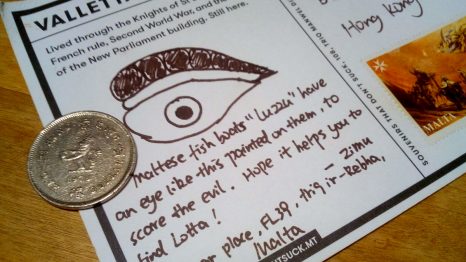 VALLETT
Lived through the Knights of St
French rule, Second World War, and the
of the New Parliament building. Still here.
Maltese fish boats "Luzzu" have
an eye like this painted on them, to
scare the evil. Hope it helps you to
find Lotta!
— Zimu
place, FL39, Triq ir-Rebha,
Malta
TSUCK.MT
Hong Kong
SOUVENIRS THAT DON'T SUCK, 108, TRIQ
MALTA